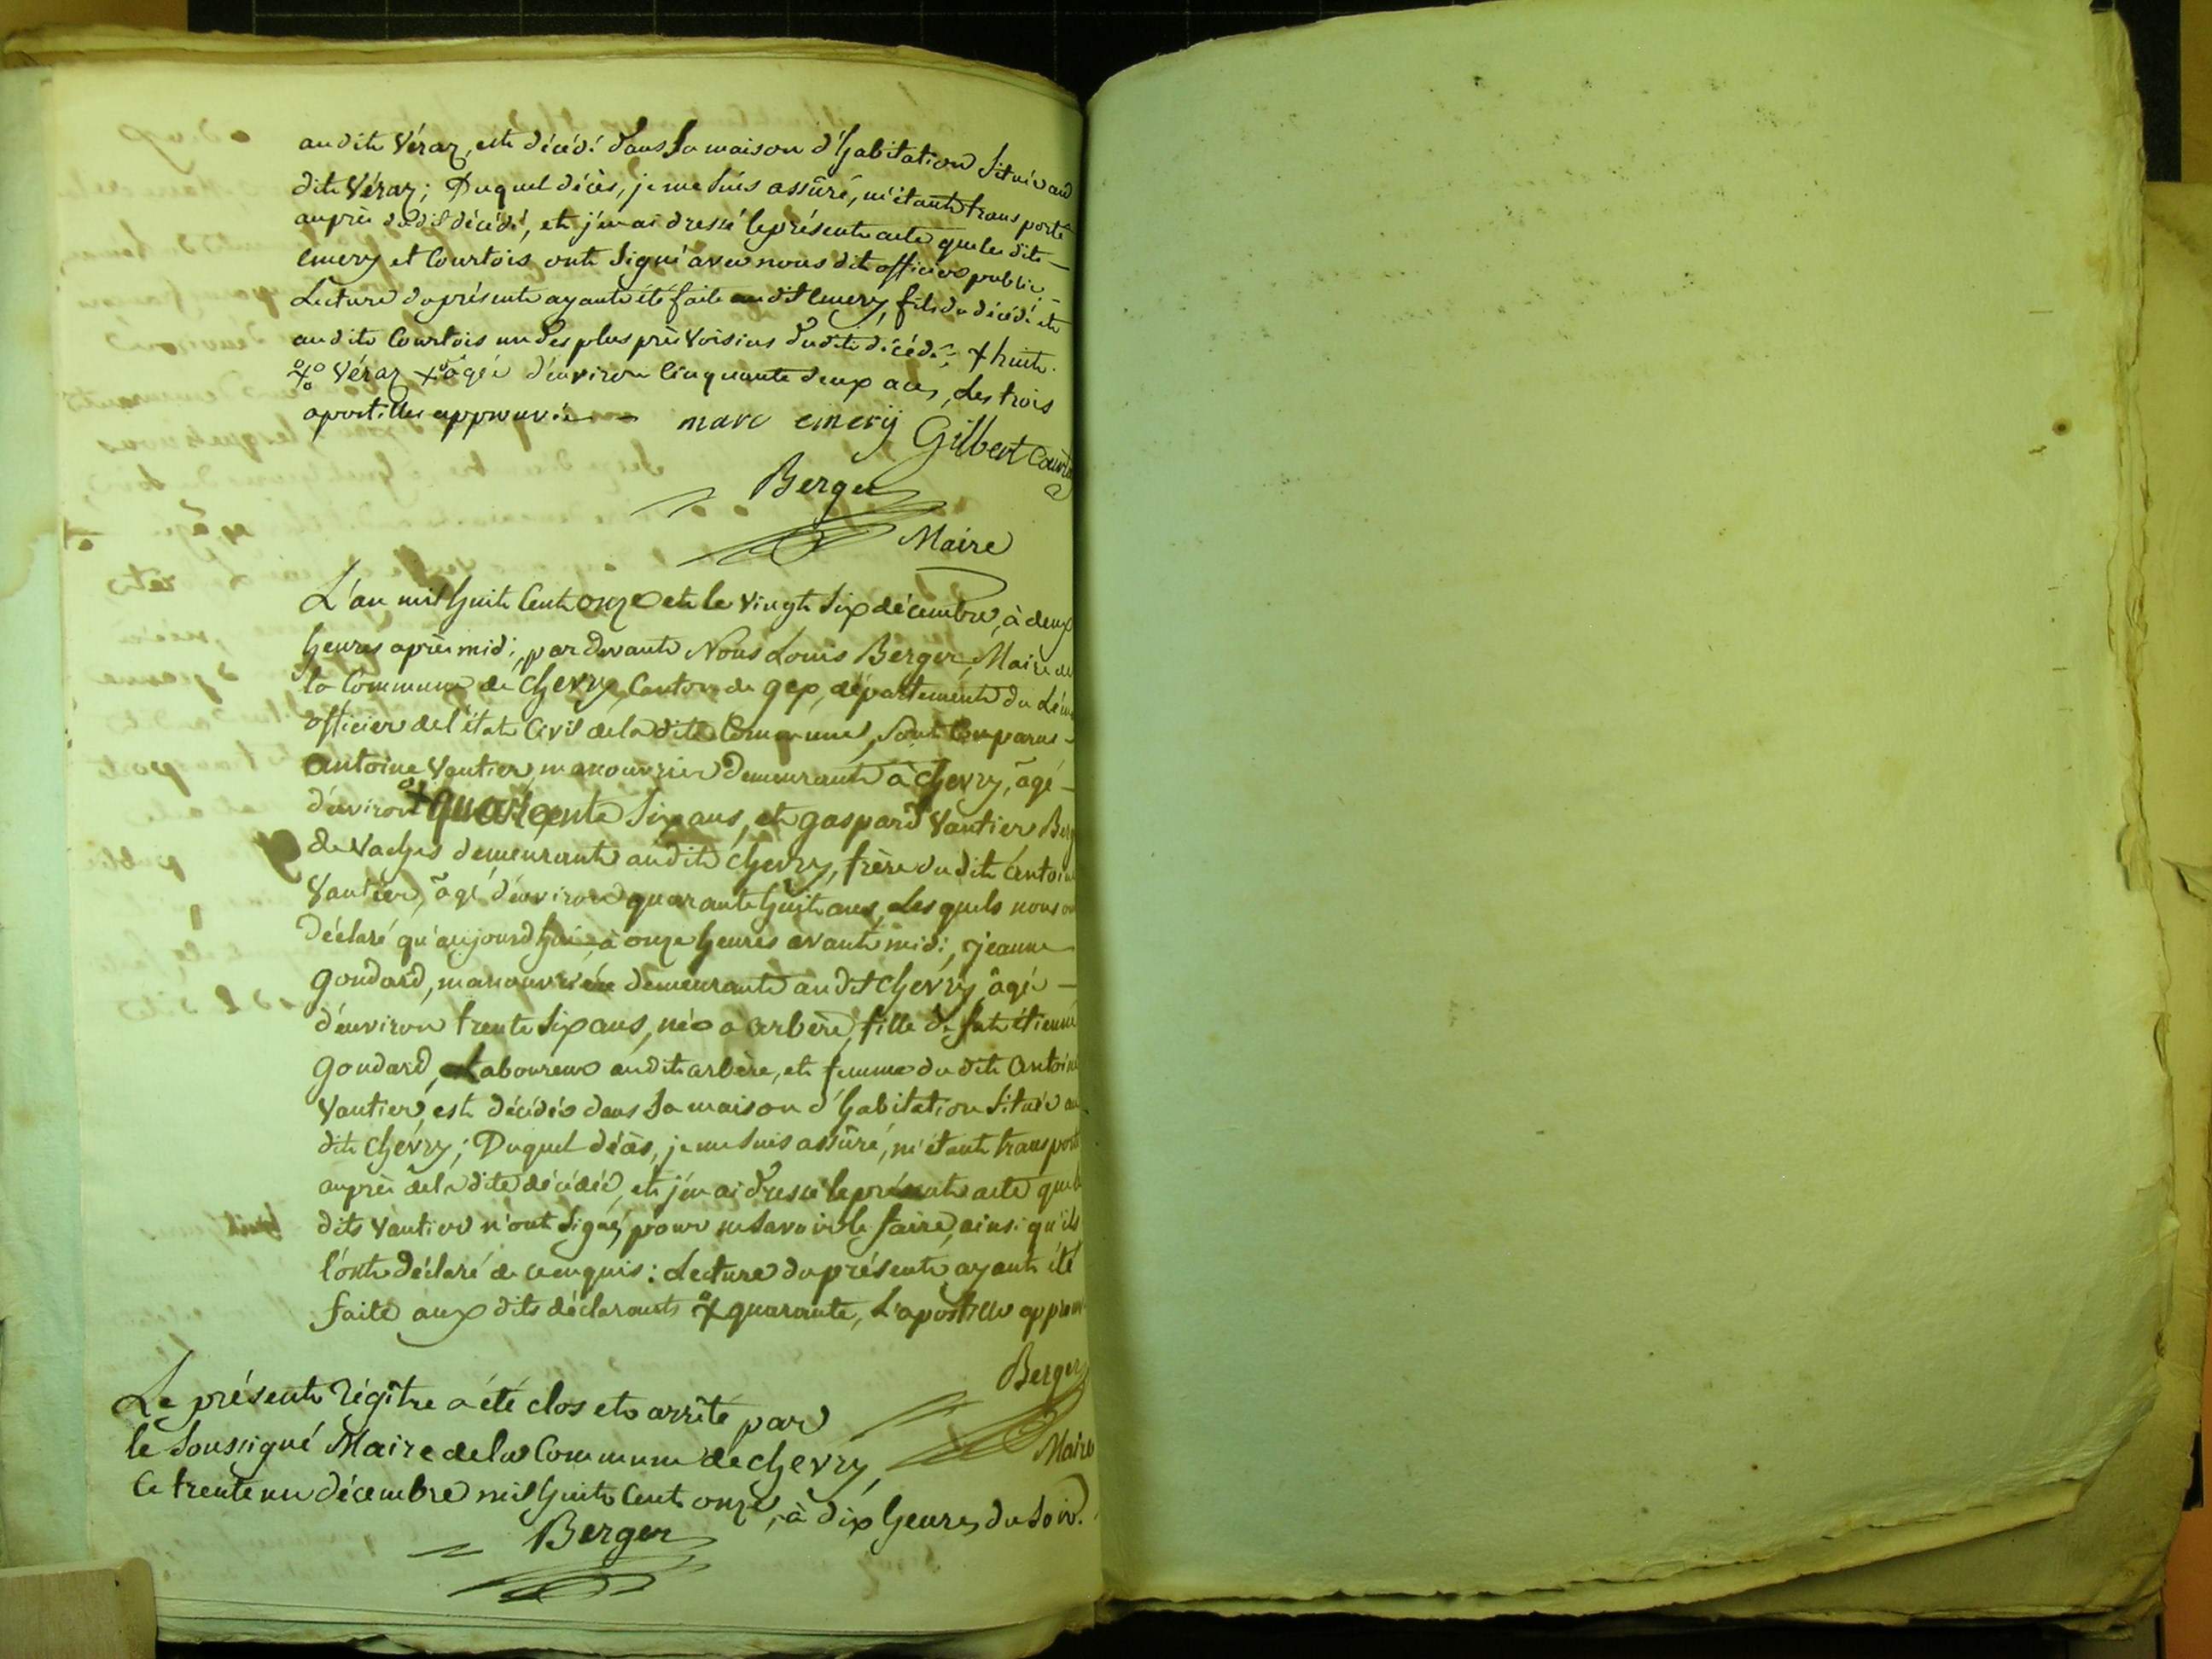 audit Véraz, est décédé dans sa maison d'habitation située au
dit Véraz; Duquel décès, je me suis assûré, m'étant transporté
auprès dudit décédé, et j'en ai dressé le présent acte que les dits
emery et Courtois ont signé avec nous dit officier public.
Lecture du présent ayant été faite audit emery, fils du décédé et
audit Courtois un des plus près voisins dudit décédé; + huit.
Véraz + âgé d'environ cinquante deux ans, Les trois
apostilles approuvées marc emerÿ Gilbert
Berger
Maire
L'an mil huit cent onze et le vingt six décembre, à deux
heures après midi, pardevant Nous Louis Berger, Maire de
la Commune de chevry, Canton de gex, département du
officier de l'état Civil de la dite Commune, sont Comparus
antoine Vautier, manouvrier demeurant à chevry, âgé
d'environ + six ans, et gaspard Vautier
de Vaches demeurant audit chevry, frère du dit
Vautier, âgé d'environ quarante huit ans, Lesquels nous
déclaré qu'aujourd'hui à onze heures avant midi, jeanne
goudard, manouvrière demeurante audit chevry, âgée
d'environ trente six ans, née à arbère, fille de fut étienne
goudard, Laboureur audit arbère, et femme du dit antoine
Vautier, est décédée dans sa maison d'habitation située au
dit chevry; Duquel décès, je me suis assûré, m'étant
auprès de la dite décédée, et j'en ai dressé le présent acte
dits Vautier n'ont signé, pour ne savoir le faire, ainsi qu'ils
l'ont déclaré de ce enquis: Lecture du présent ayant été
faite aux dits déclarants + quarante, L'apostille
Berger
Maire
Le présent régître a été clos et arrêté par
le soussigné Maire de la Commune de chevry,
Ce trente un décembre mil huit cent onze, à dix heures du soir.
Berger